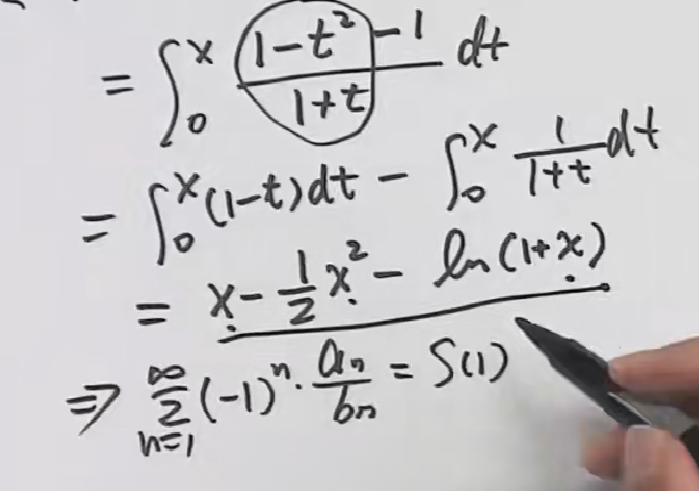 = ∫₀ˣ (1-t²-1)/(1+t) dt
= ∫₀ˣ (1-t)dt - ∫₀ˣ 1/(1+t) dt
= x - 1/2 x² - ln(1+x)
⇒ ∑_{n=1}^{∞} (-1)ⁿ · aₙ/bₙ = S(1)